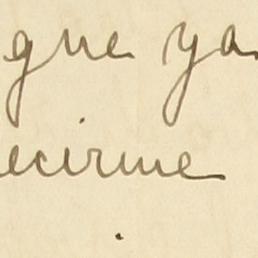 que ya
ecirme
.